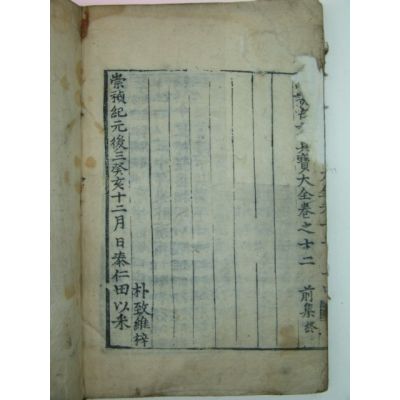 寶大全卷之十二 前集終
崇禎紀元後三癸亥十二月 日泰仁田以采
朴致維梓